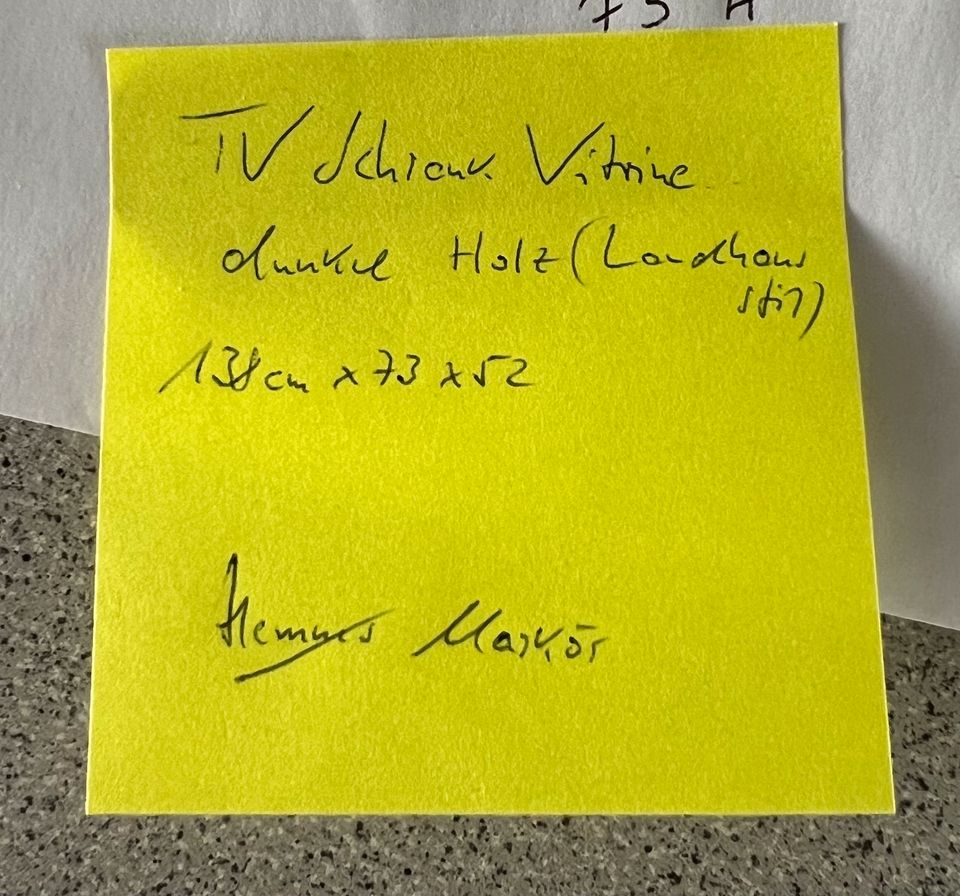 75 H
TV Schrank Vitrine
dunkel Holz (Landhaus
stil)
138cm x 73 x 52
Hemnes Markör